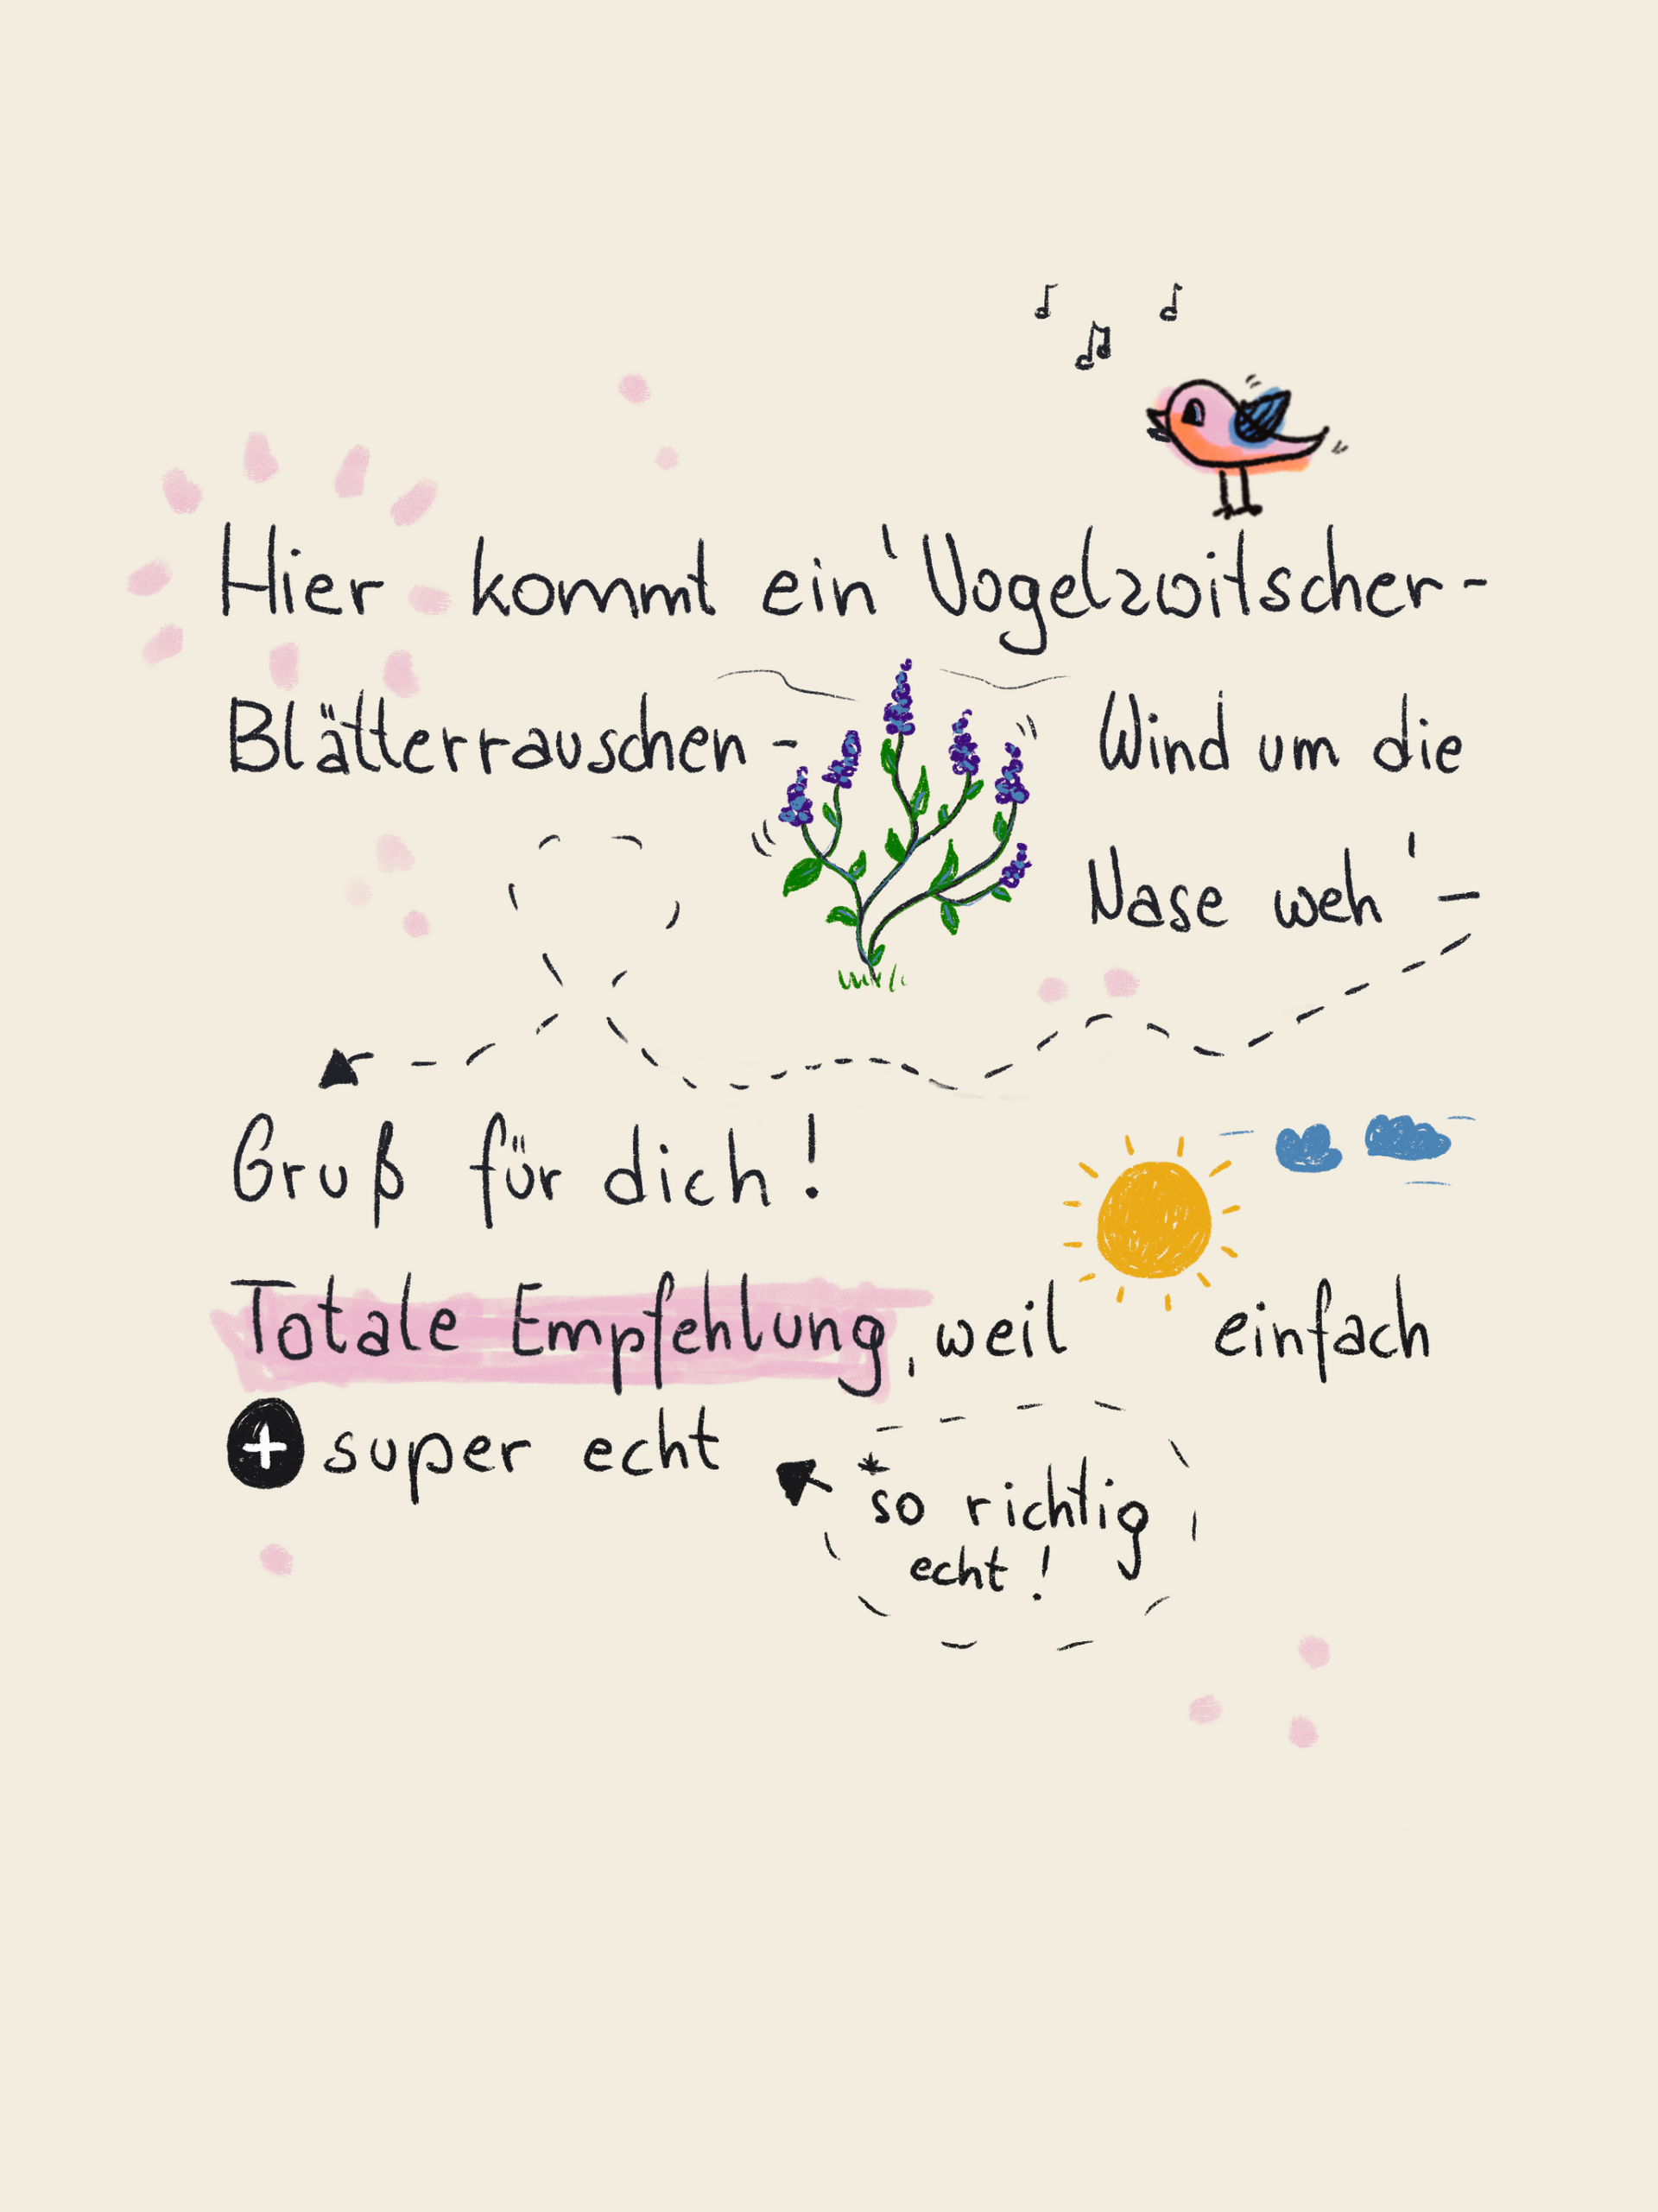 Hier kommt ein 'Vogelzwitscher-
Blätterrauschen - Wind um die
Nase weh' -
Gruß für dich!
Totale Empfehlung, weil einfach
+ super echt
*so richtig
echt!